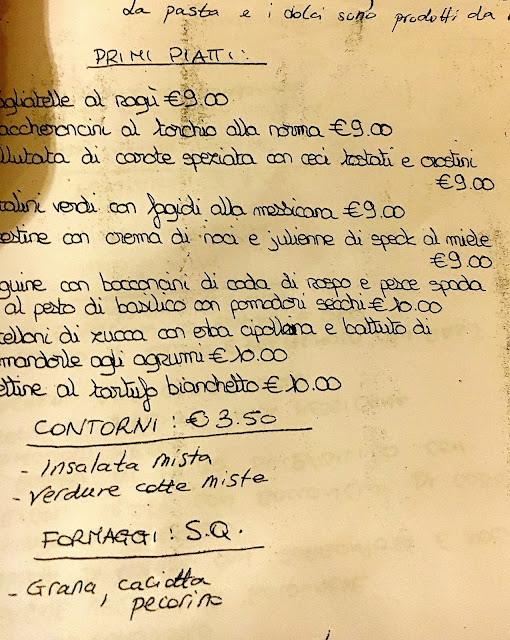 La pasta e i dolci sono prodotti da
PRIMI PIATTI:
agliatelle al ragù €9.00
accheroncini al torchio alla norma €9.00
llutata di carote speziata con ceci tostati e crostini
€9.00
talini verdi con fagioli alla messicana €9.00
estine con crema di noci e julienne di speck al miele
€9.00
guine con bocconcini di coda di rospo e pesce spada
al pesto di basilico con pomodori secchi €10.00
telloni di zucca con erba cipollina e battuto di
mandorle agli agrumi €10.00
ettine al tartufo bianchetto €10.00
CONTORNI: € 3.50
- Insalata mista
- Verdure cotte miste
FORMAGGI: S.Q.
- Grana, caciotta
, pecorino